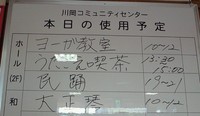 川岡コミュニティセンター
本日の使用予定
ホール ヨーガ教室 10~12
うたごえ喫茶 13:30 15:00
(2F) 民踊 19~21
和 大正琴 10~12